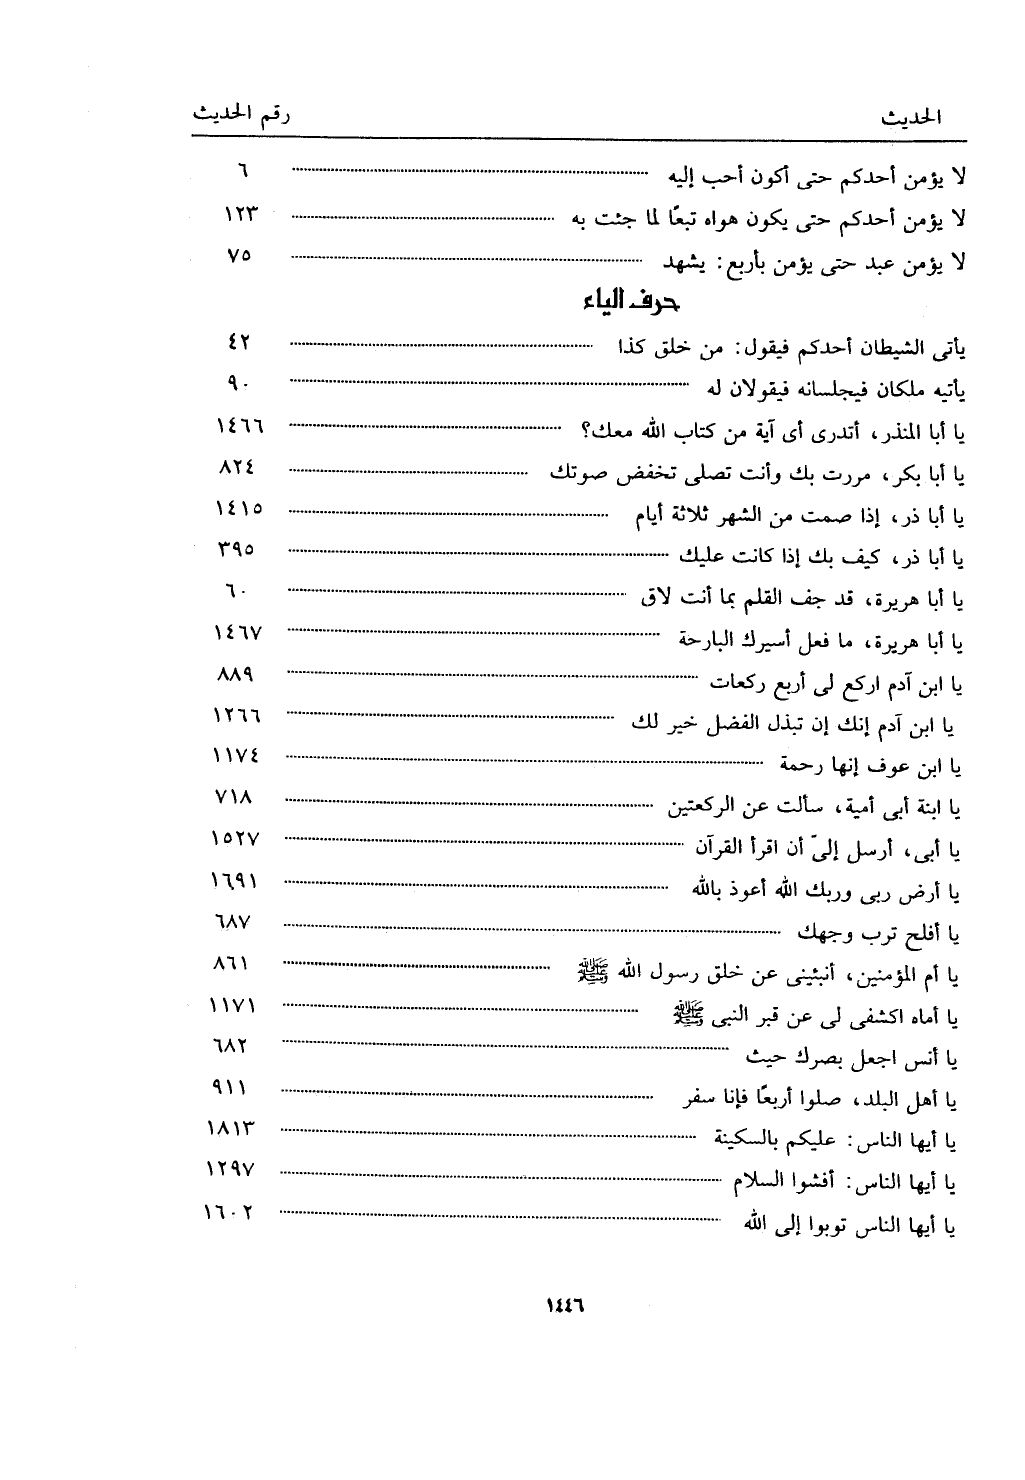 الحديث رقم الحديث
لا يؤمن أحدكم حتى أكون أحب إليه ٦
لا يؤمن أحدكم حتى يكون هواه تبعًا لما جئت به ١٢٣
لا يؤمن عبد حتى يؤمن بأربع: يشهد ٧٥
حرف الياء
يأتى الشيطان أحدكم فيقول: من خلق كذا ٤٢
يأتيه ملكان فيجلسانه فيقولان له ٩٠
يا أبا المنذر، أتدرى أى آية من كتاب الله معك؟ ١٤٦٦
يا أبا بكر، مررت بك وأنت تصلى تخفض صوتك ٨٢٤
يا أبا ذر، إذا صمت من الشهر ثلاثة أيام ١٤١٥
يا أبا ذر، كيف بك إذا كانت عليك ٣٩٥
يا أبا هريرة، قد جف القلم بما أنت لاق ٦٠
يا أبا هريرة، ما فعل أسيرك البارحة ١٤٦٧
يا ابن آدم اركع لى أربع ركعات ٨٨٩
يا ابن آدم إنك إن تبذل الفضل خير لك ١٢٦٦
يا ابن عوف إنها رحمة ١١٧٤
يا ابنة أبى أمية، سألت عن الركعتين ٧١٨
يا أبى، أرسل إلىّ أن اقرأ القرآن ١٥٢٧
يا أرض ربى وربك الله أعوذ بالله ١٦٩١
يا أفلح ترب وجهك ٦٨٧
يا أم المؤمنين، أنبئينى عن خلق رسول الله ﷺ ٨٦١
يا أماه اكشفى لى عن قبر النبى ﷺ ١١٧١
يا أنس اجعل بصرك حيث ٦٨٢
يا أهل البلد، صلوا أربعًا فإنا سفر ٩١١
يا أيها الناس: عليكم بالسكينة ١٨١٣
يا أيها الناس: أفشوا السلام ١٢٩٧
يا أيها الناس توبوا إلى الله ١٦٠٢
١٤٤٦